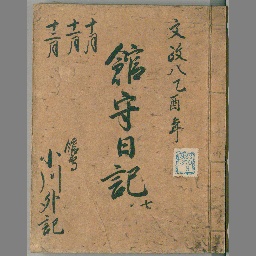 文政八乙酉年
館守日記
七
十月
十一月
十二月
館守
小川外記